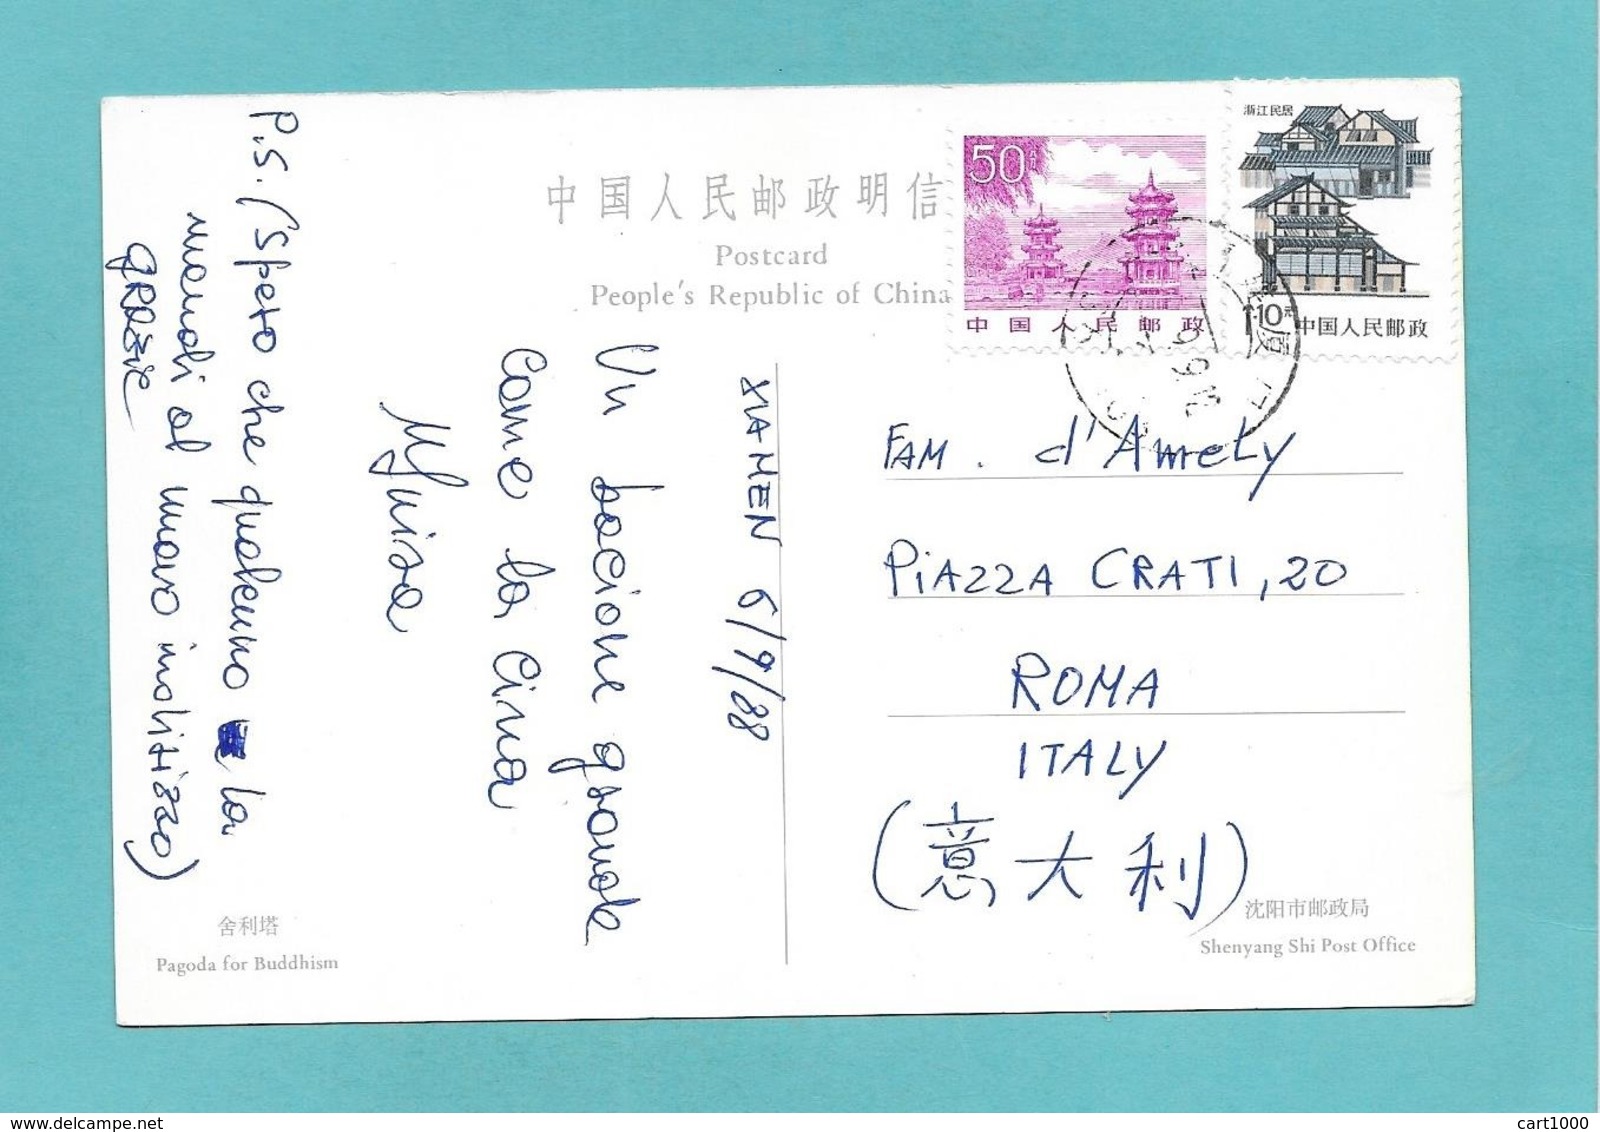 中国人民邮政明信
Postcard
People's Republic of China
50
中国人民邮政
浙江民居
中国人民邮政
XIAMEN 6/9/88
Un bacione grande
come la Cina
P.S. (Spero che qualcuno la
mandi al nuovo indirizzo)
GRAZIE
FAM. d'Amely
PIAZZA CRATI, 20
ROMA
ITALY
(意大利)
舍利塔
Pagoda for Buddhism
沈阳市邮政局
Shenyang Shi Post Office
cart1000